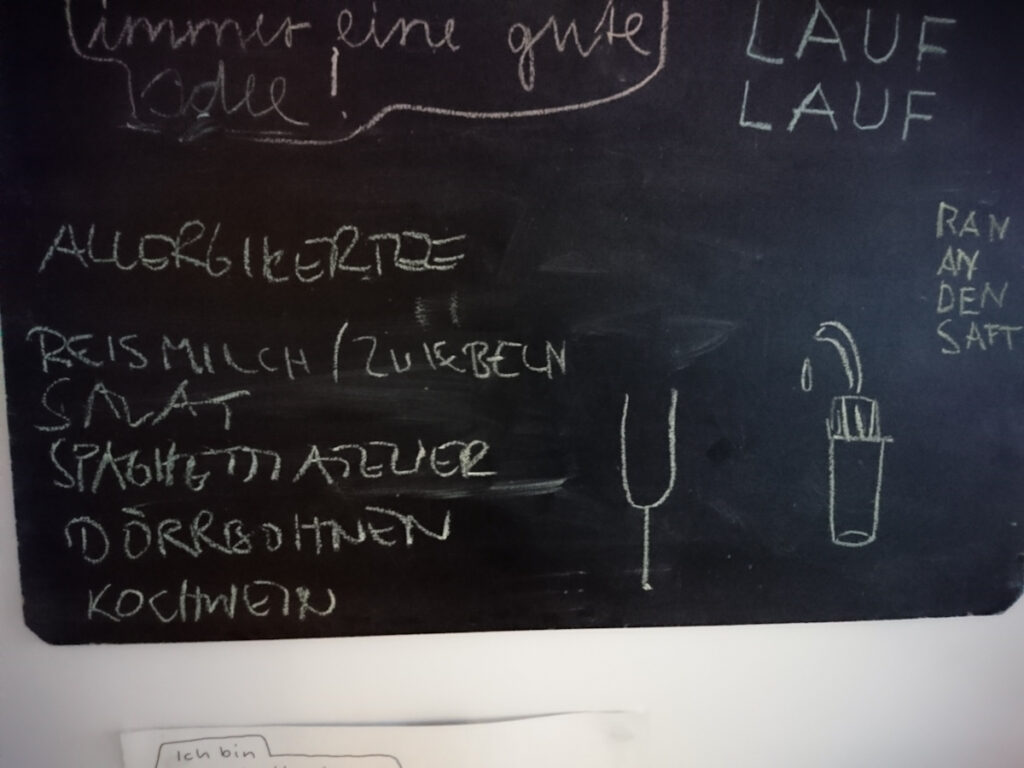 immer eine gute
Idee!
LAUF
LAUF
RAN
AN
DEN
SAFT
ALLERGIKERTEE
REISMILCH / ZWIEBELN
SALAT
SPAGHETTI ATELIER
DÖRRBOHNEN
KOCHWEIN
Ich bin